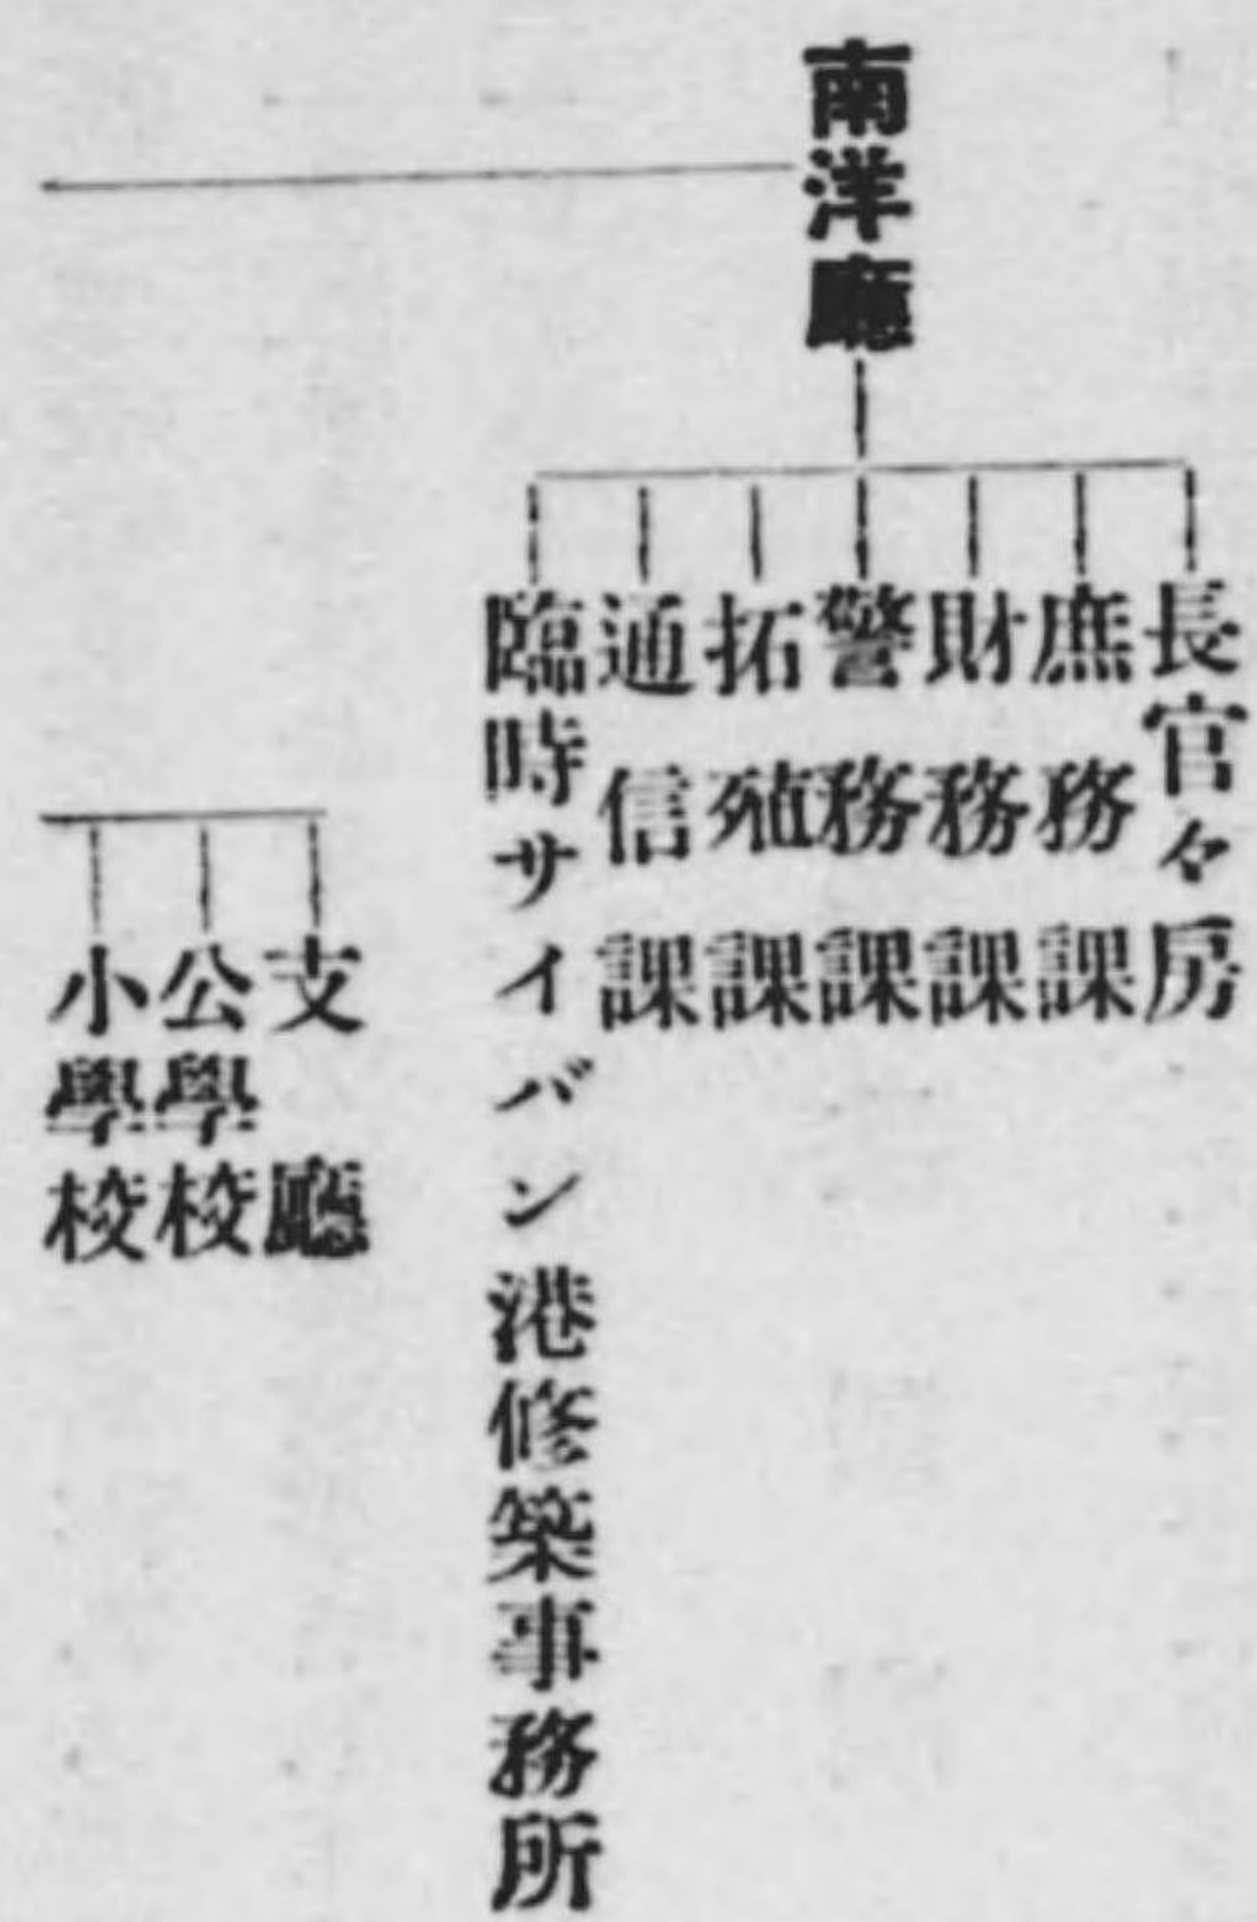 南洋廳
長官々房
庶務課
財務課
警務課
拓殖課
通信課
臨時サイパン港修築事務所
支廳
公學校
小學校